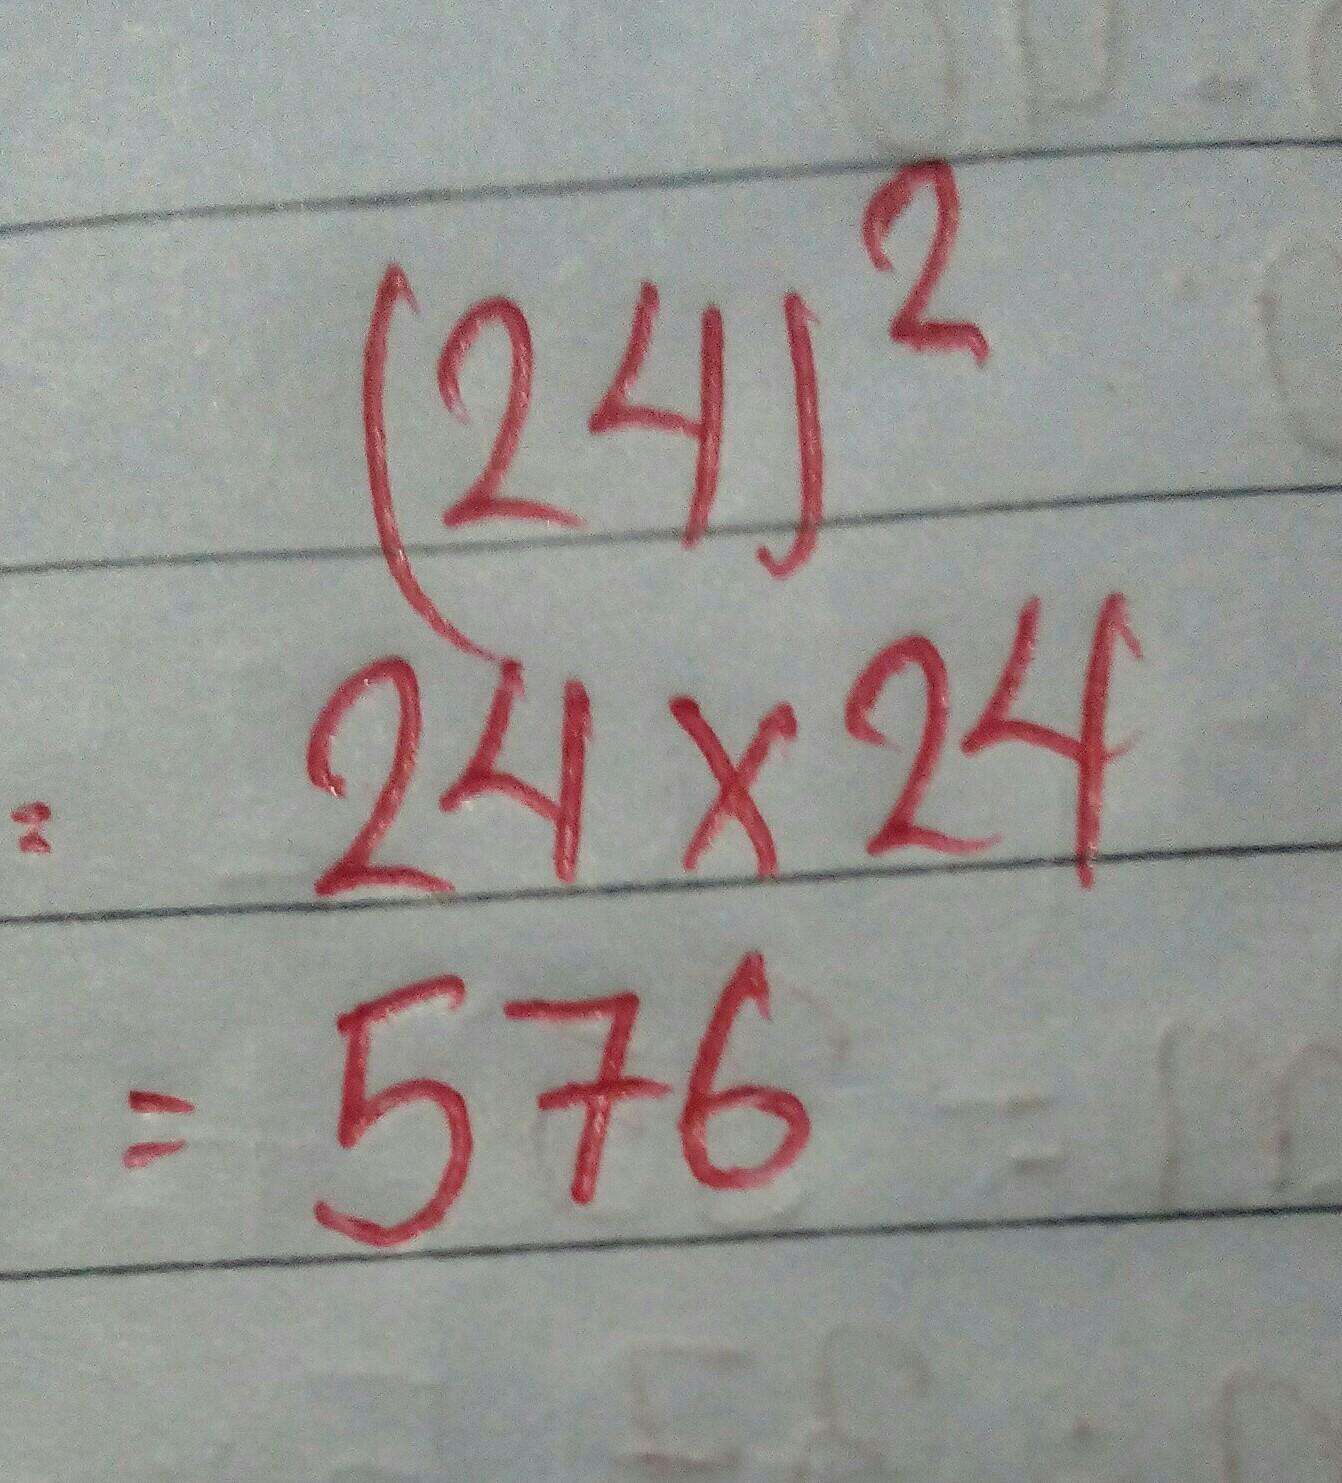 (24)²
= 24 x 24
= 576